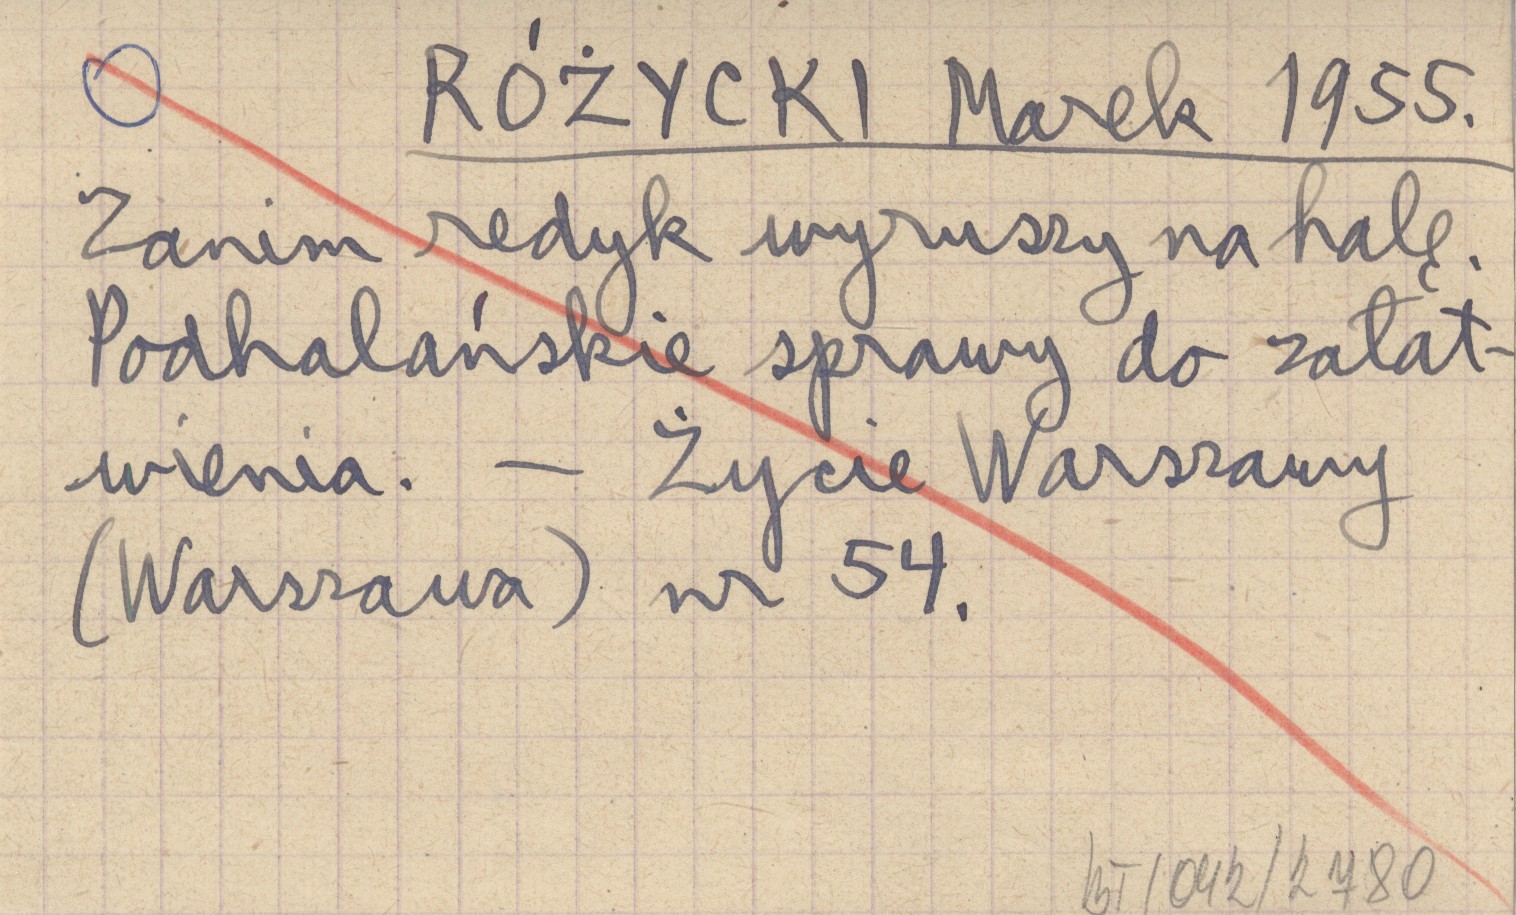 RÓŻYCKI Marek 1955.
Zanim redyk wyruszy na halę.
Podhalańskie sprawy do załat-
wienia. — Życie Warszawy
(Warszawa) nr 54.
BT/042/2780